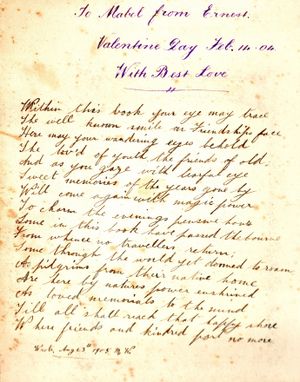 To Mabel from Ernest.
Valentine Day Feb. 14-04.
With Best Love
Within this book your eye may trace
The well known smile on Friendships face
Here may your wandering eyes behold
The of youth the friends of old
And as you gaze with tearful eye
Sweet memories of the years gone by
Will come again with magic power
To charm the evenings pensive hour
Some in this book have passed the bourne
From whence no travellers return;
Some through the world yet doomed to roam
As pilgrims from their native home
Are here by natures power enshrined
As loved memorials to the mind
Till all shall reach that happy shore
Where friends and kindred part no more
Aug